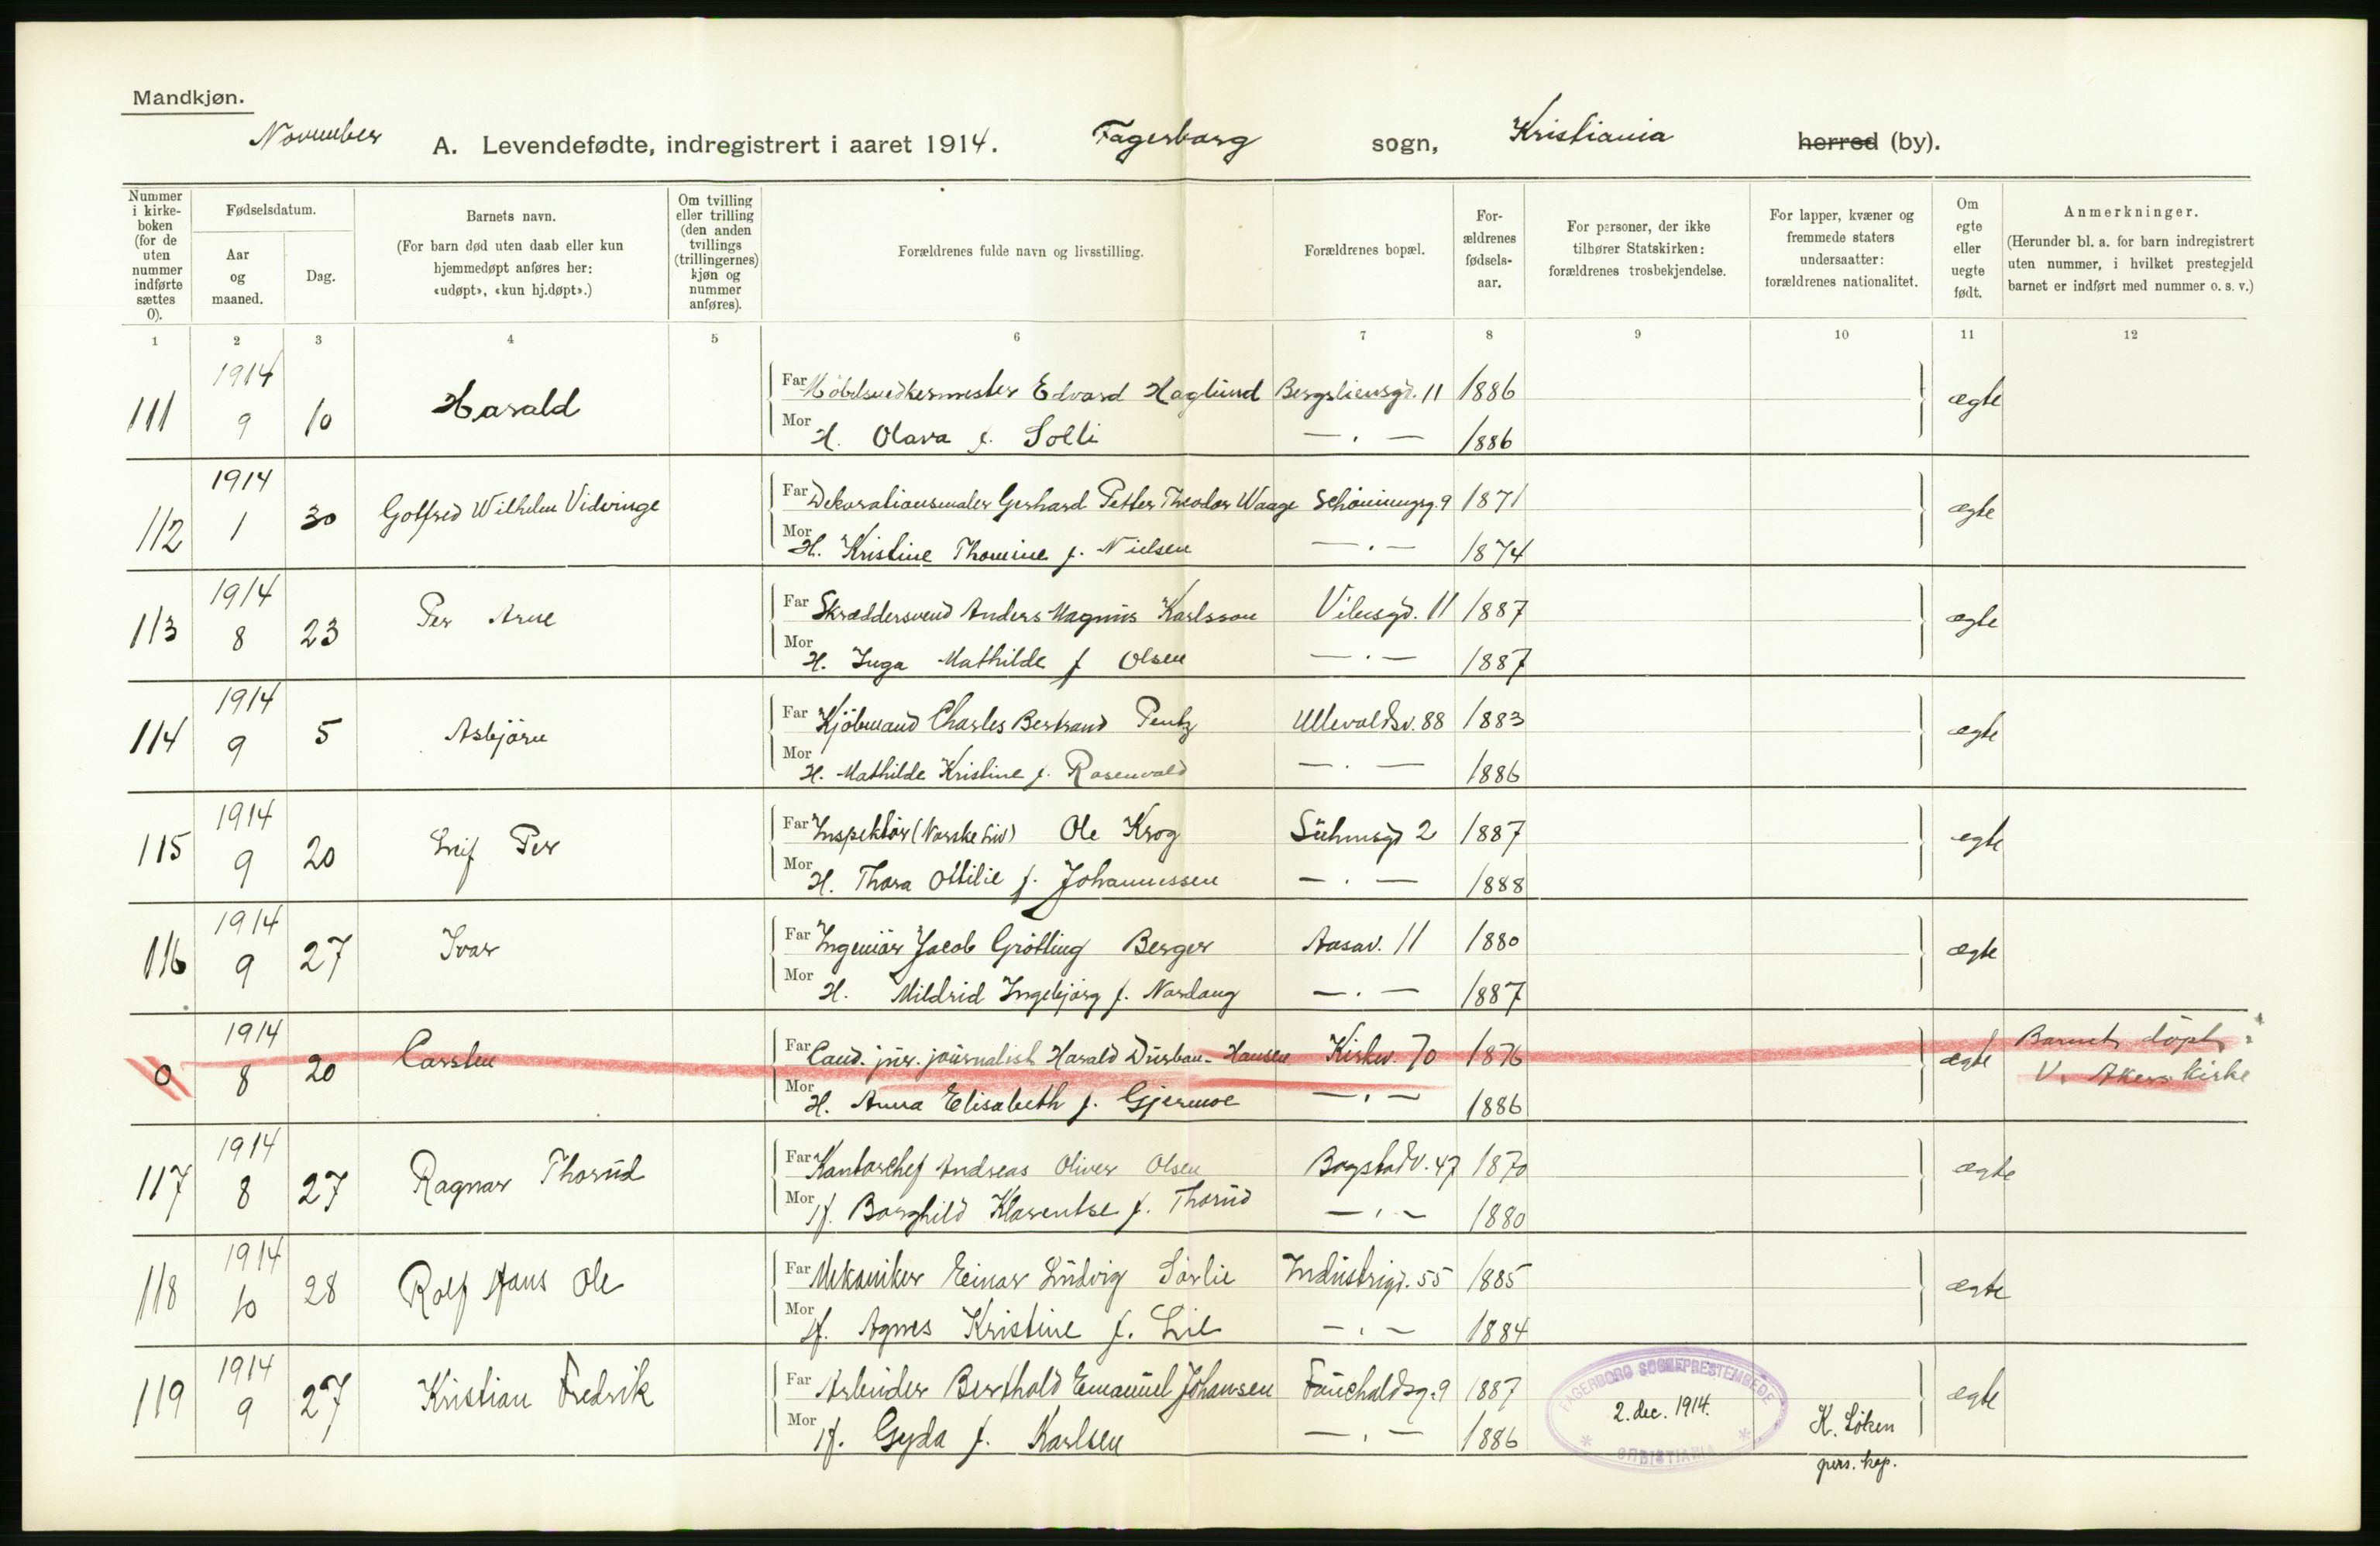 Mandkjøn.
November A. Levendefødte, indregistrert i aaret 1914. Fagerborg sogn, Kristiania herred (by).
Nummer i kirke-boken (for de uten nummer indførte sættes 0).
Fødselsdatum.
Aar og maaned.
Dag.
Barnets navn.
(For barn død uten daab eller kun hjemmedøpt anføres her: «udøpt», «kun hj.døpt».)
Om tvilling eller trilling (den anden tvillings (trillingernes) kjøn og nummer anføres).
Forældrenes fulde navn og livsstilling.
Forældrenes bopæl.
For-ældrenes fødsels-aar.
For personer, der ikke tilhører Statskirken: forældrenes trosbekjendelse.
For lapper, kvæner og fremmede staters undersaatter: forældrenes nationalitet.
Om egte eller uegte født.
Anmerkninger.
(Herunder bl. a. for barn indregistrert uten nummer, i hvilket prestegjeld barnet er indført med nummer o. s. v.)
1 2 3 4 5 6 7 8 9 10 11 12
111 1914 9 10 Harald Far Edvard Haglund Bergsliensgd. 11 1886 ægte
Mor H. Olava f. Solli — . — 1886
112 1914 1 30 Gotfred Wilhelm Far Dekorationsmaler Gerhard Petter Theodor Waage Schöningsg. 9 1871 ægte
Mor H. Kristine Thomine f. Nielsen — . — 1874
113 1914 8 23 Per Arne Far Skræddersvend Anders Magnus Karlsson Vibesgd. 11 1887 ægte
Mor H. Inga Mathilde f Olsen — . — 1887
114 1914 9 5 Asbjörn Far Kjöbmand Charles Bertrand Pentz Ullevoldsv. 88 1883 ægte
Mor H. Mathilde Kristine f. Rosenvold — . — 1886
115 1914 9 20 Leif Per Far Inspektör (Norske Liv) Ole Krog Suhmsgd 2 1887 egte
Mor H. Thora Ottilie f. Johannessen — . — 1888
116 1914 9 27 Ivar Far Ingeniör Jacob Grötting Berger Aasav. 11 1880 ægte
Mor H. Mildrid Ingebjørg f. Nordang — . — 1887
0 1914 8 20 Carsten Far Cand. jur. journalist Harald Durban-Hansen Kirkev. 70 1876 ægte Barnet döpt i
Mor H. Anna Elisabeth f. Gjermoe — . — 1886 V. Akers kirke
117 1914 8 27 Ragnar Thorud Far Kontorchef Andreas Oliver Olsen Bogstadv. 47 1870 ægte
Mor H. Borghild Klarentse f. Thorud — . — 1880
118 1914 10 28 Rolf Hans Ole Far Mekaniker Einar Ludvig Sörlie Industrigd. 55 1885 ægte
Mor H. Agnes Kristine f. Lie — . — 1884
119 1914 9 27 Kristian Fredrik Far Arbeider Berthold Emanuel Johansen Fauchaldsg. 9 1887 ægte
Mor H. Gyda f. Karlsen — . — 1886
FAGERBORG SOGNEPRESTEMBEDE
2. dec. 1914.
CHRISTIANIA
K. Löken
pers. kap.